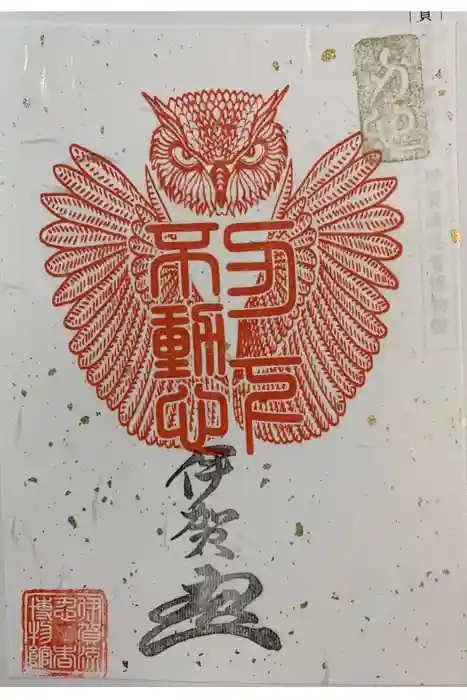 刃下
不動心
伊賀
伊賀流
忍者
博物館